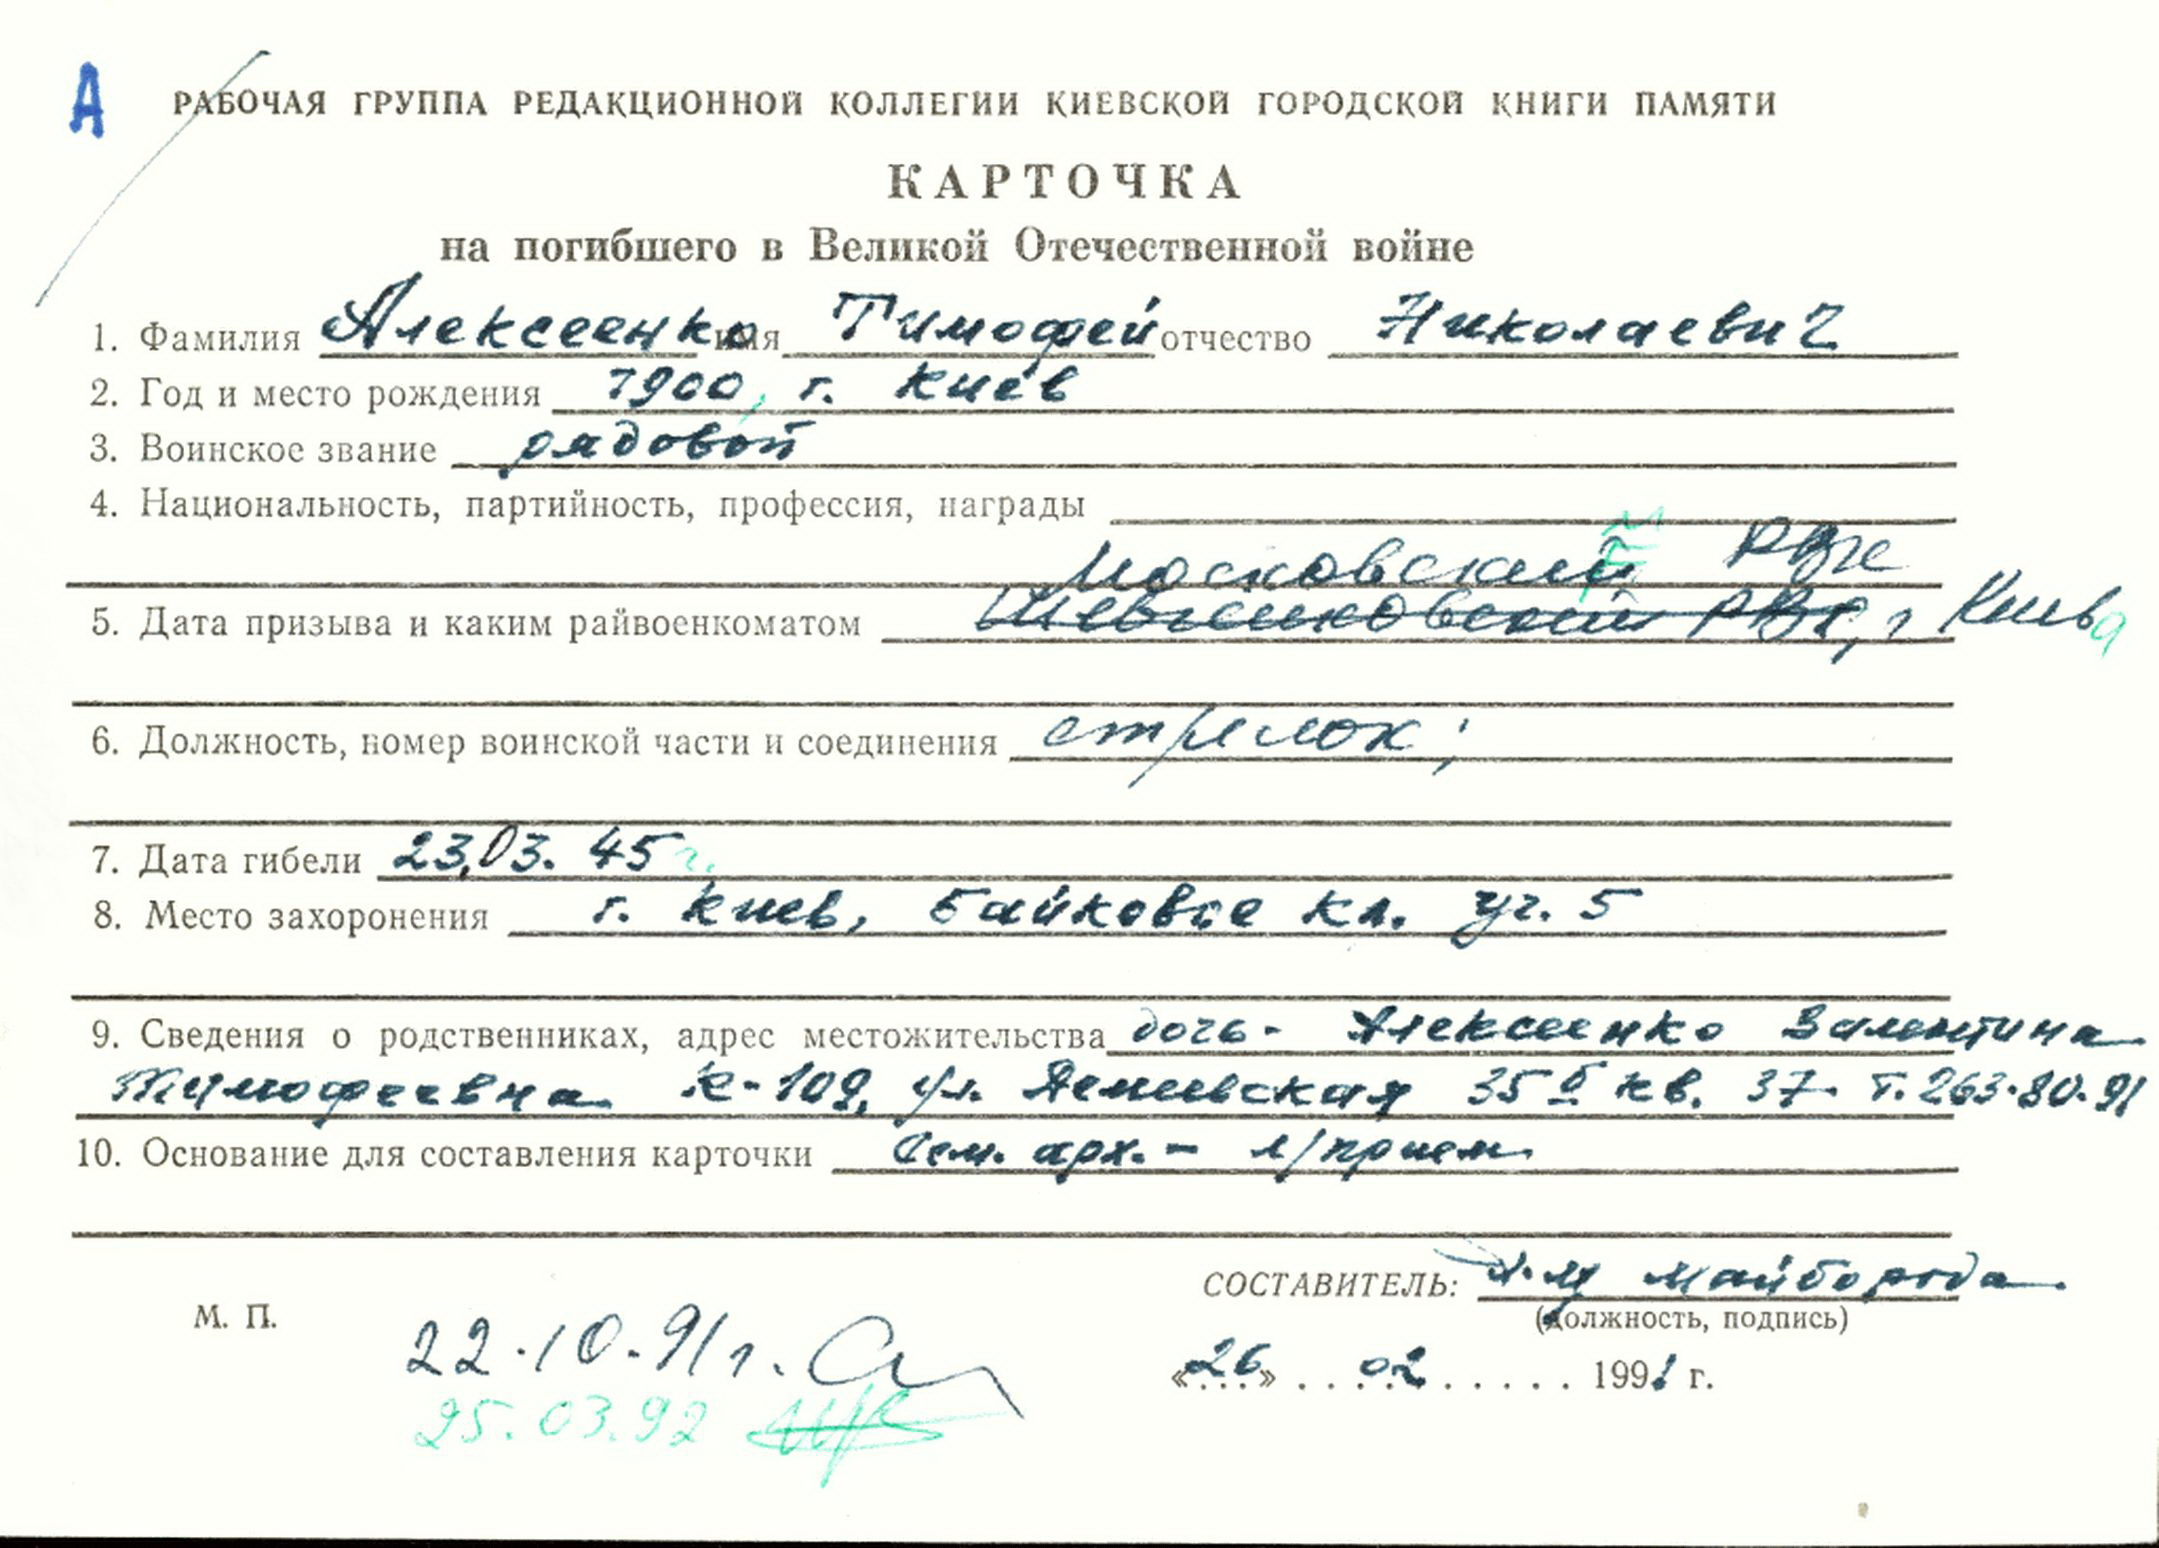 А РАБОЧАЯ ГРУППА РЕДАКЦИОННОЙ КОЛЛЕГИИ КИЕВСКОЙ ГОРОДСКОЙ КНИГИ ПАМЯТИ
КАРТОЧКА
на погибшего в Великой Отечественной войне
1. Фамилия Алексеенко имя Тимофей отчество Николаевич
2. Год и место рождения 1900, г. Киев
3. Воинское звание рядовой
4. Национальность, партийность, профессия, награды
Московский РВК
5. Дата призыва и каким райвоенкоматом Шевченковский РВК, г Киева
6. Должность, номер воинской части и соединения стрелок;
7. Дата гибели 23.03.45 г.
8. Место захоронения г. Киев, Байковое кл. уч. 5
9. Сведения о родственниках, адрес местожительства дочь - Алексеенко Валентина
Тимофеевна К-109, ул. 35 б кв. 37 т. 263-80-91
10. Основание для составления карточки Сем. арх. - л/прием
СОСТАВИТЕЛЬ: Майборода
(должность, подпись)
М. П.
22.10.91 г.
«26» 02 1991 г.
25.03.92